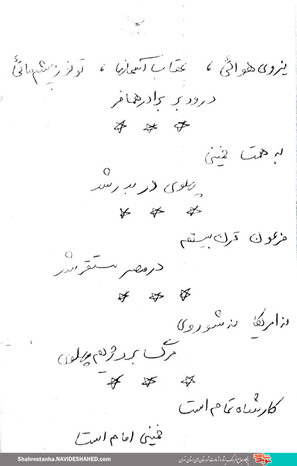 نیروی هوائی ، عقاب آسمانها ، تو نور چشم مائی
درود بر برادر همافر
به همت خمینی
پهلوی در بدر شد
فرعون قرن بیستم
در مصر مستقر شد
نه امریکا نه شوروی
مرگ بر رژیم پهلوی
کار شاه تمام است
خمینی امام است
Shahrestanha.NAVIDESHAHED.com